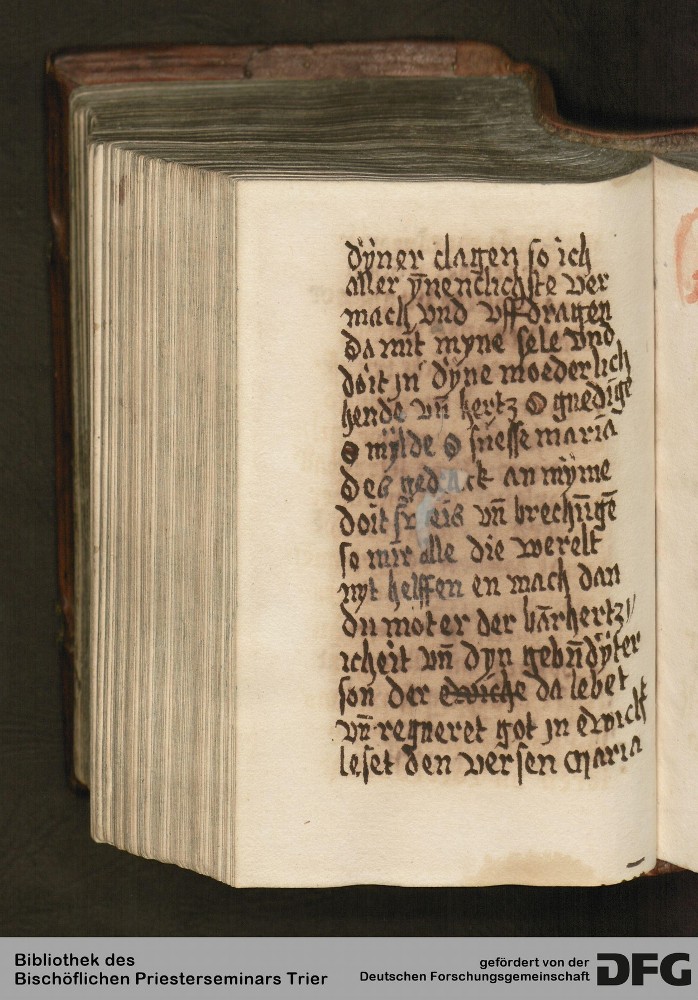 dÿner clagen so ich
aller ÿnenclichste ver
mach vnd vff dragen
da mit myne sele vnd
doit jn dÿne moederlich
hende vn̄ hertz O gnedīge
O mÿlde O suesse maria
des ged ck an mÿme
doit eis vn̄ brechūgē
so mir alle die werelt
nyt helffen en mach dan
du moter der bārhertz
icheit vn̄ dyn gebn̄dÿter
son der ewiche da lebet
vn̄ regneret got jn ewick
leset den versen maria
Bibliothek des
Bischöflichen Priesterseminars Trier
gefördert von der
Deutschen Forschungsgemeinschaft
DFG